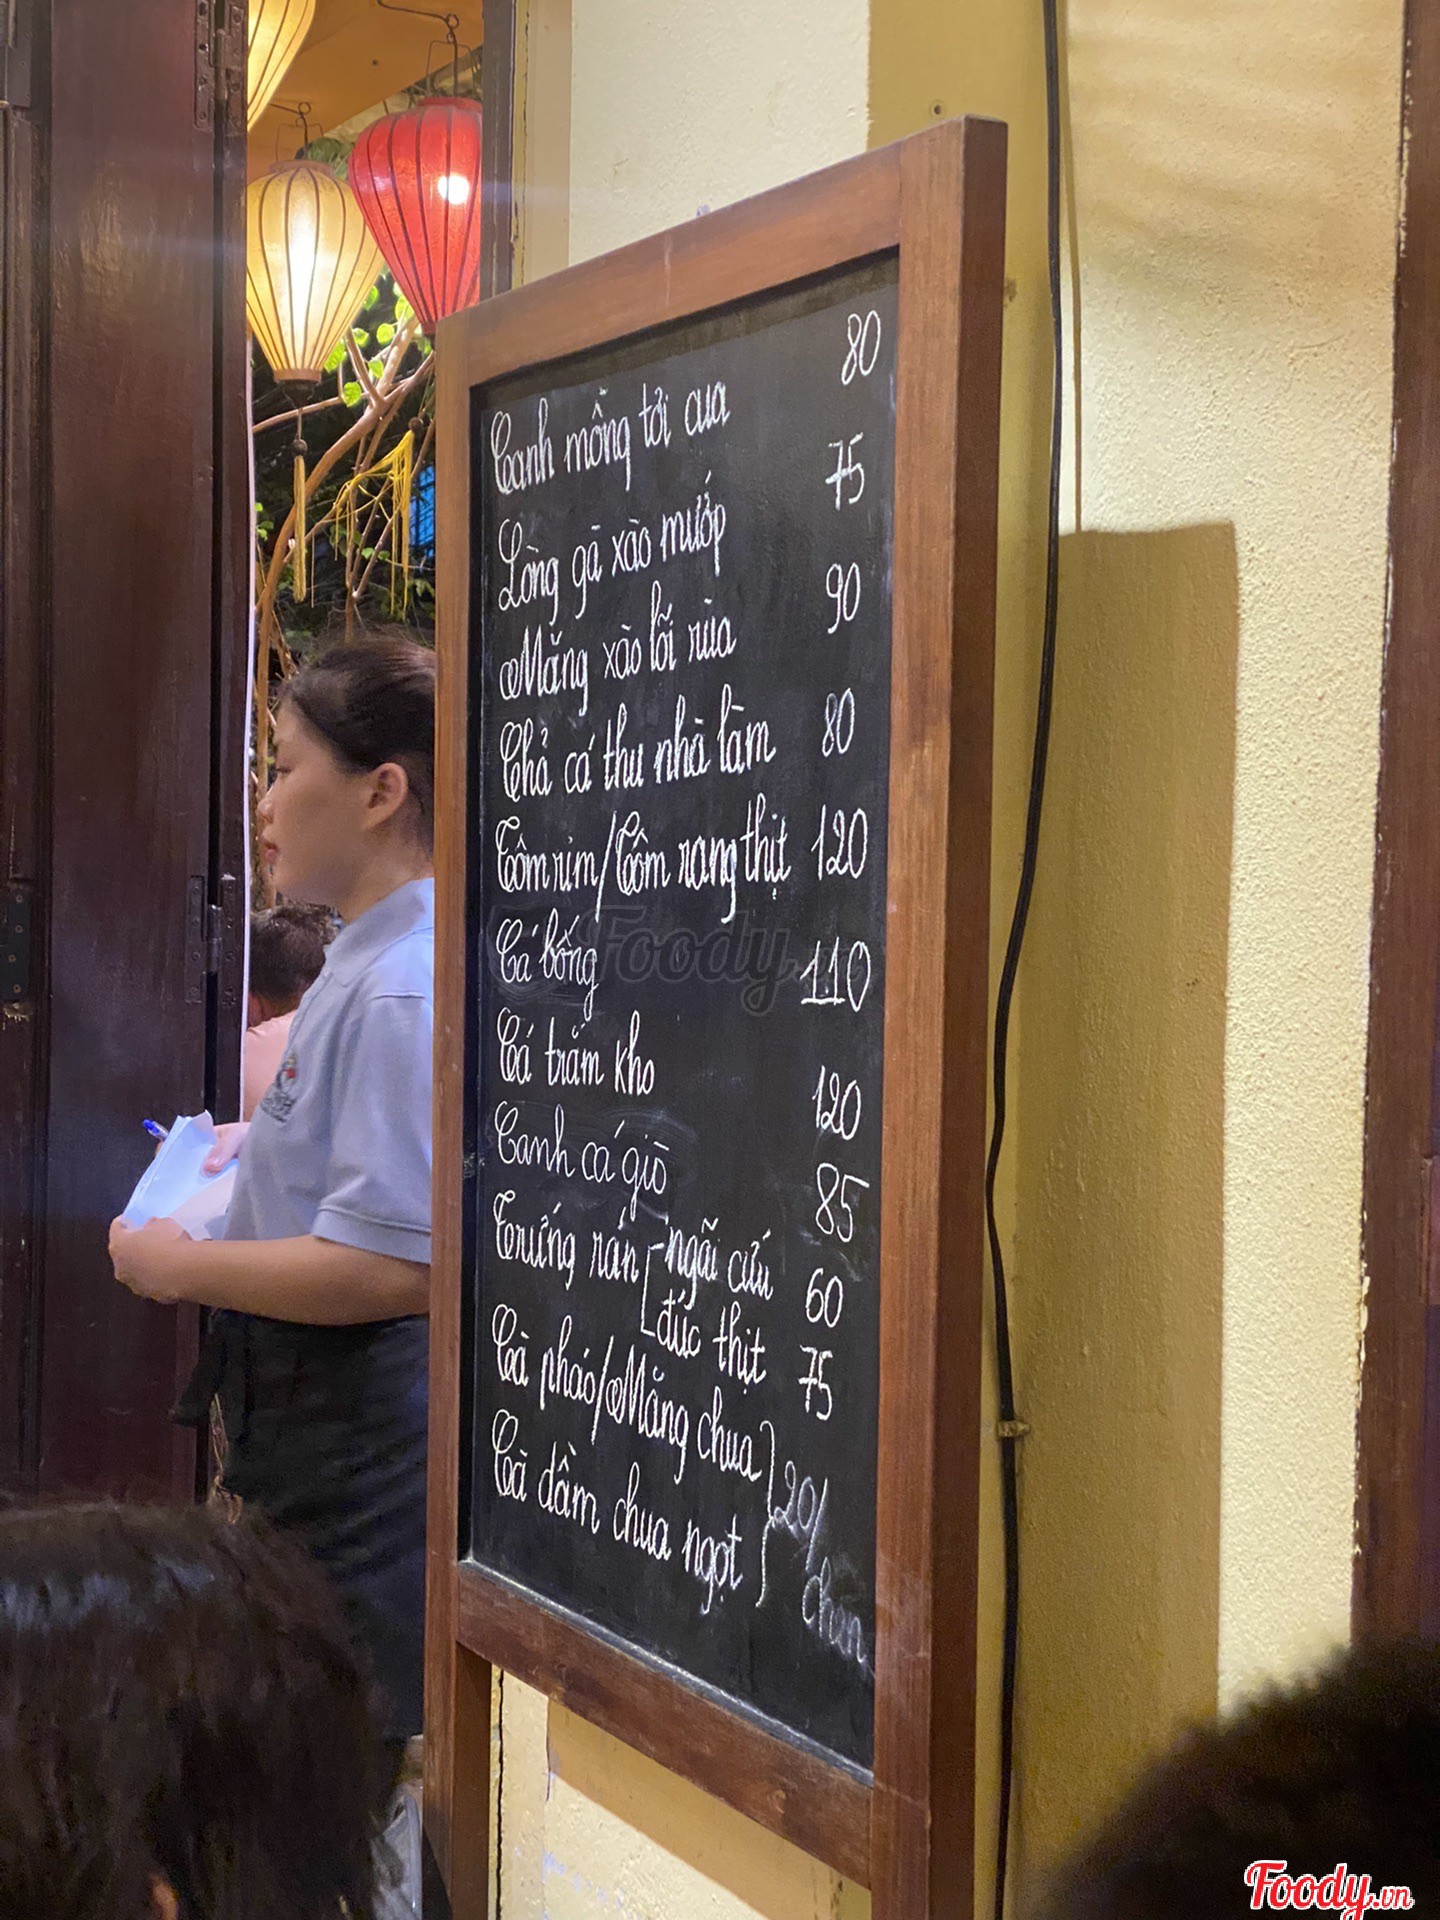 Canh mồng tơi cua 80
Lòng gà xào mướp 75
Măng xào lõi rùa 90
Chả cá thu nhà làm 80
Tôm rim/Tôm rang thịt 120
Cá bống 110
Cá trắm kho 120
Canh cá giò 85
Trứng rán ngãi cứu 60
đúc thịt 75
Cà pháo/Măng chua
Cà dầm chua ngọt
20/
chén
Foody.vn
Foody.vn